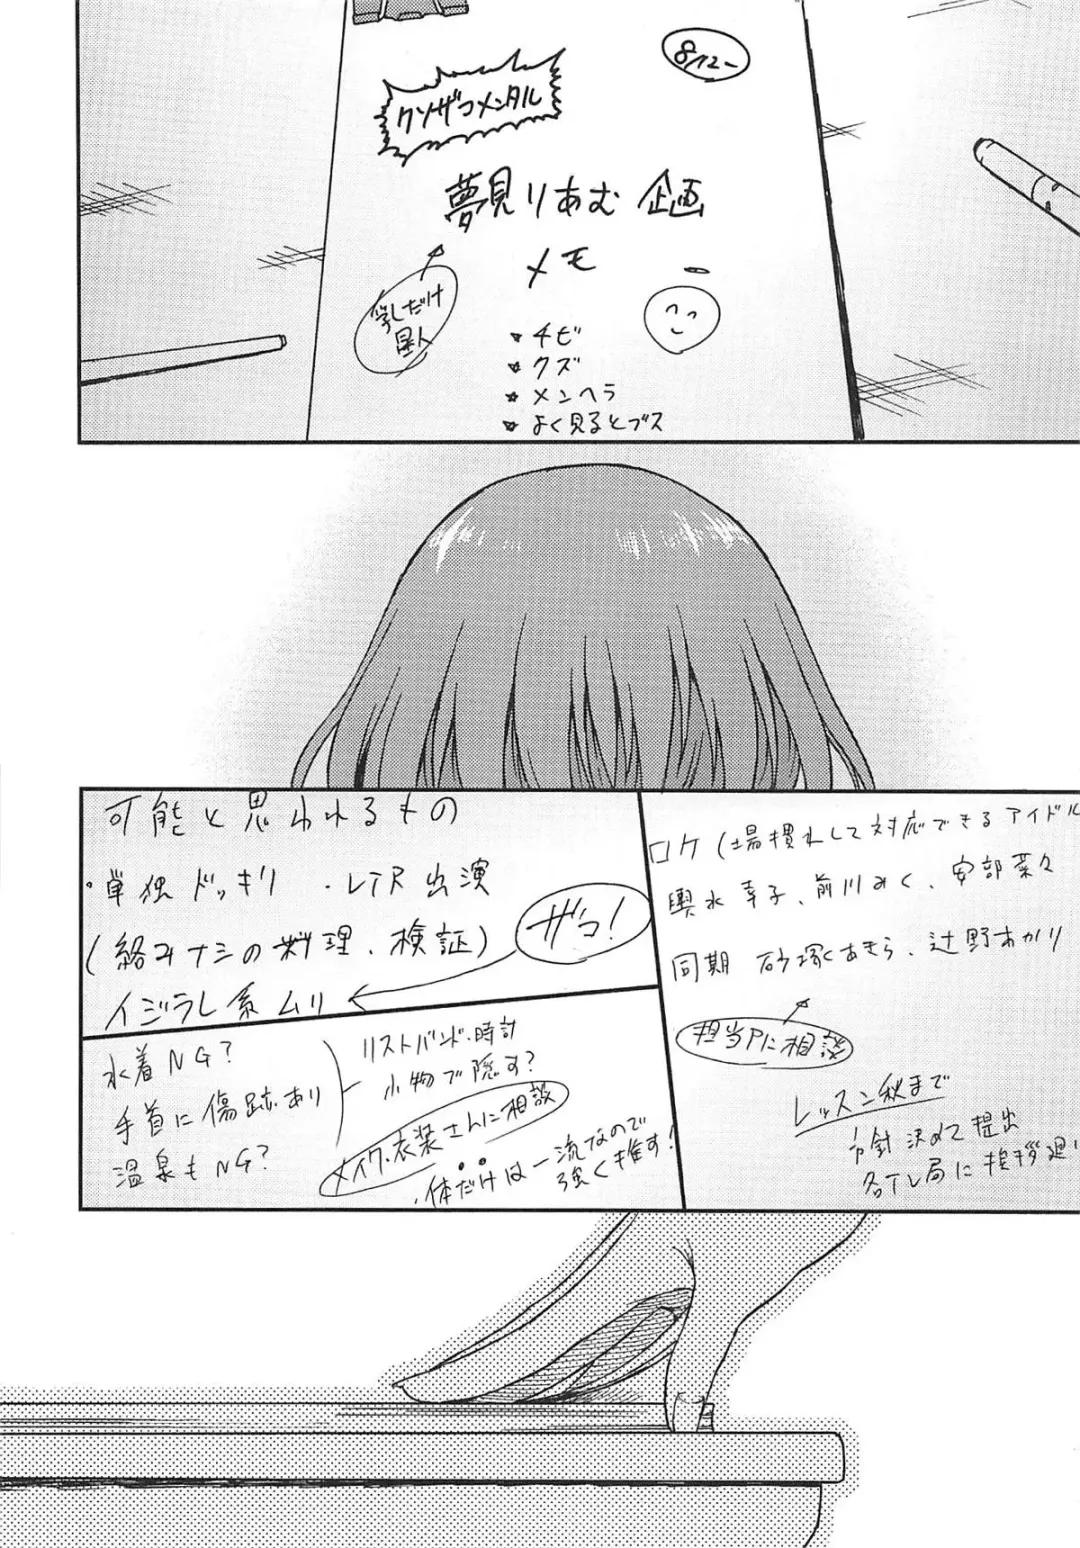 8/12〜
クソザコメンタル
夢見りあむ 企画
メモ
乳だけ
星人
チビ
クズ
メンヘラ
よく見るとブス
ロケ(場慣れして対応できるアイドル
輿水幸子、前川みく、安部菜々
同期 砂塚あきら、辻野あかり
担当Pに相談
レッスン秋まで
方針決めて提出
各テレ局に挨拶廻
可能と思われるもの
・単独ドッキリ ・VTR出演
(絡みナシの料理、検証)
ザコ!
イジラレ系ムリ
水着NG?
手首に傷跡あり
温泉もNG?
リストバンド・時計
小物で隠す?
メイク・衣装さんに相談
・体だけは一流なので
強く推す!